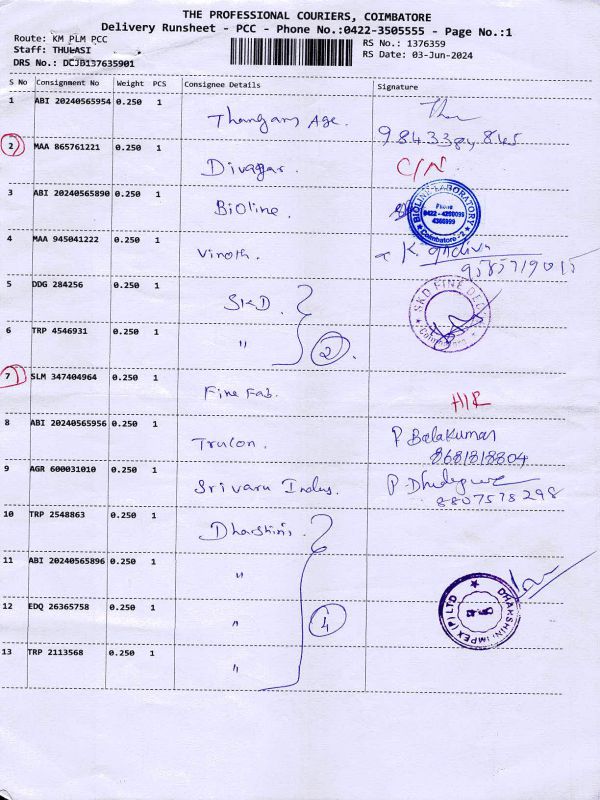 THE PROFESSIONAL COURIERS, COIMBATORE
Delivery Runsheet - PCC - Phone No.:0422-3505555 - Page No.:1
Route: KM PLM PCC
Staff: THULASI
DRS No.: DCJB137635901
RS No.: 1376359
RS Date: 03-Jun-2024
S No Consignment No Weight PCS Consignee Details Signature
1 ABI 20240565954 0.250 1 Thangam Age.
2 MAA 865761221 0.250 1 Divagar. C/N
3 ABI 20240565890 0.250 1 Bioline. BIOLINE LABORATORY Phone 0422 - Coimbatore - 2
4 MAA 945041222 0.250 1 Vinoth. K. 9585719015
5 DDG 284256 0.250 1 SKD. SKD FINE Coimbatore
6 TRP 4546931 0.250 1 " 2
7 SLM 347404964 0.250 1 Fine Fab.
8 ABI 20240565956 0.250 1 Trulon. P Balakumar 8681818804
9 AGR 600031010 0.250 1 Srivaru Indus. P. 8807578298
10 TRP 2548863 0.250 1 Dharshini.
11 ABI 20240565896 0.250 1 "
12 EDQ 26365758 0.250 1 " 4 DHAKSHINI IMPEX (P) LTD
13 TRP 2113568 0.250 1 "